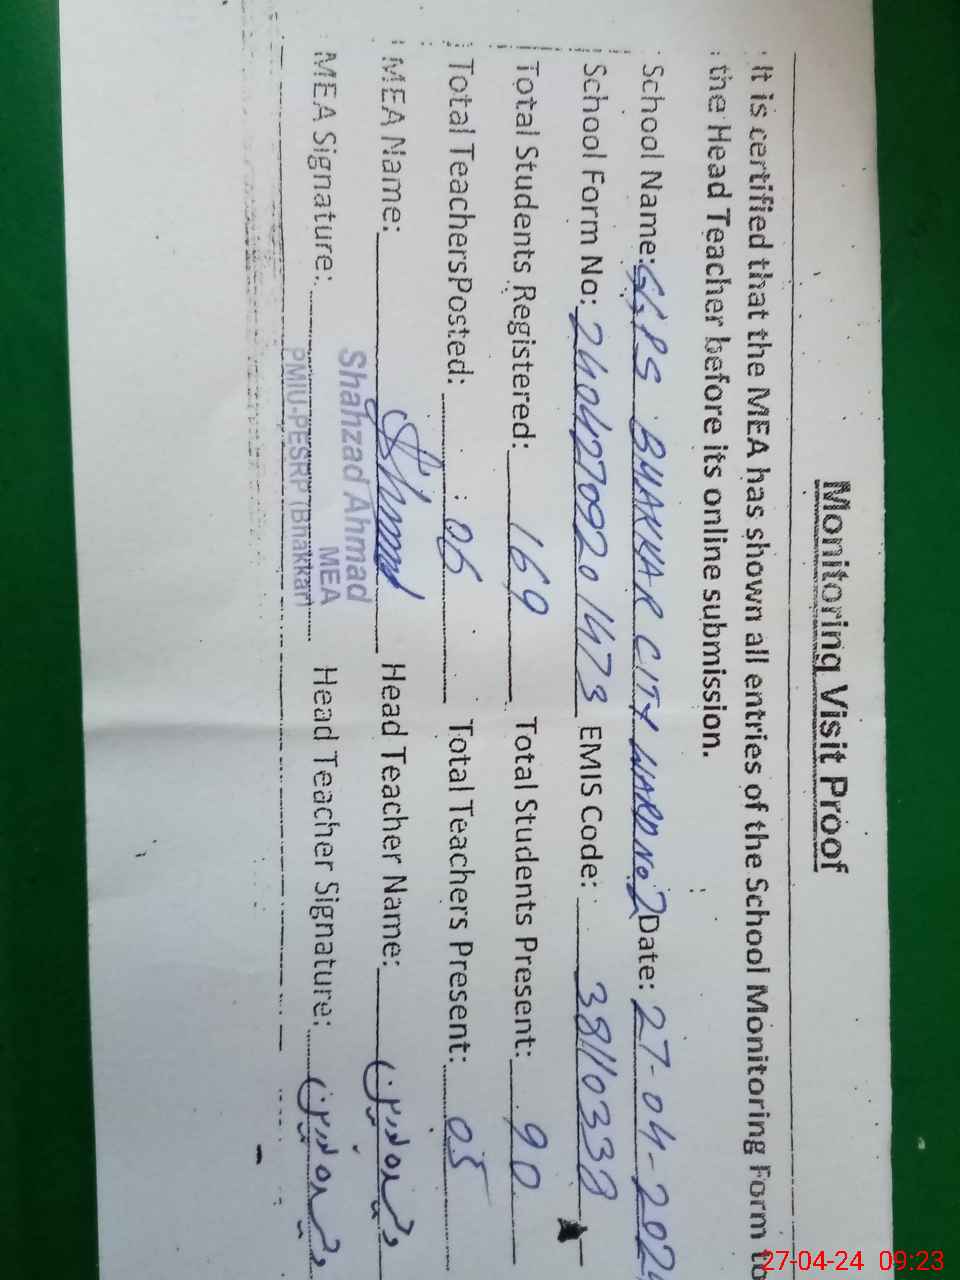 Monitoring Visit Proof
It is certified that the MEA has shown all entries of the School Monitoring Form to
the Head Teacher before its online submission.
School Name: GPS BHAKHAR CITY WARD No. 2 Date: 27-04-202
School Form No: 24042709201473 EMIS Code: 38110338
Total Students Registered: 169 Total Students Present: 90
Total TeachersPosted: 06 Total Teachers Present: 05
MEA Name: Head Teacher Name:
MEA Signature: Head Teacher Signature:
Shahzad Ahmad
MEA
PMIU-PESRP (Bhakkar)
27-04-24 09:23